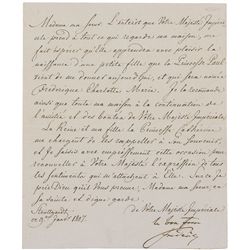 Madame ma Soeur. L'intérêt que Votre Majesté Impériale
prend à tout ce qui regarde ma maison, me
fait espérer qu'Elle apprendra avec plaisir la
naissance d'une petite fille que la Princesse Paul
vient de me donner aujourd'hui, et qui sera nommée
Fréderique Charlotte Marie. Je la recommande
ainsi que toute ma maison à la continuation de
l'amitié et des bontés de Votre Majesté Impériale.
La Reine et ma fille la Princesse Catherine
me chargent de les rappeller à Son Souvenir,
et je saisis avec empressement cette occasion pour
renouveller à Votre Majesté l'expression de tous les
sentiments qui m'attachent à Elle. Sur ce je
prie Dieu qu'il Vous préserve, Madame ma Soeur en
sa sainte et digne garde.
de Votre Majesté Impériale
Stouttgardt
ce 9 1807.
le bon frère